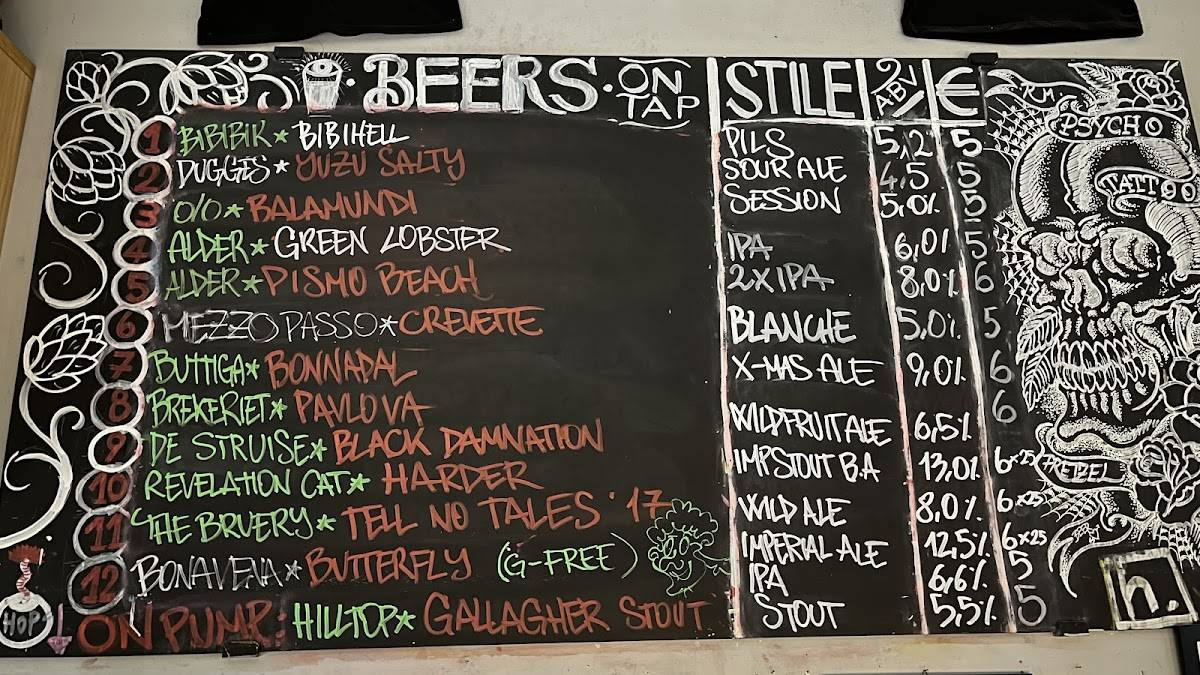 BEERS · ON TAP STILE ABV €
1 BIBIBIK * BIBIHELL PILS 5,2 5
2 DUGGES * YUZU SALTY SOUR ALE 4,5 5
3 O/O * BALAMUNDI SESSION 5,0% 5
4 ALDER * GREEN LOBSTER IPA 6,0% 5
5 ALDER * PISMO BEACH 2XIPA 8,0% 6
6 MEZZOPASSO * CREVETTE BLANCHE 5,0% 5
7 BUTTIGA * BONNADAL X-MAS ALE 9,0% 6
8 BREKERIET * PAVLOVA WILDFRUITALE 6,5% 6
9 DE STRUISE * BLACK DAMNATION IMPSTOUT B.A 13,0% 6x25
10 REVELATION CAT * HARDER WILD ALE 8,0% 6x25
11 THE BRUERY * TELL NO TALES '17 IMPERIAL ALE 12,5% 6x25
12 BONAVENA * BUTTERFLY (G-FREE) IPA 6,6% 5
ON PUMP: HILLTOP * GALLAGHER STOUT STOUT 5,5% 5
R.M.
PSYCHO
TATTOO
h.
HOP